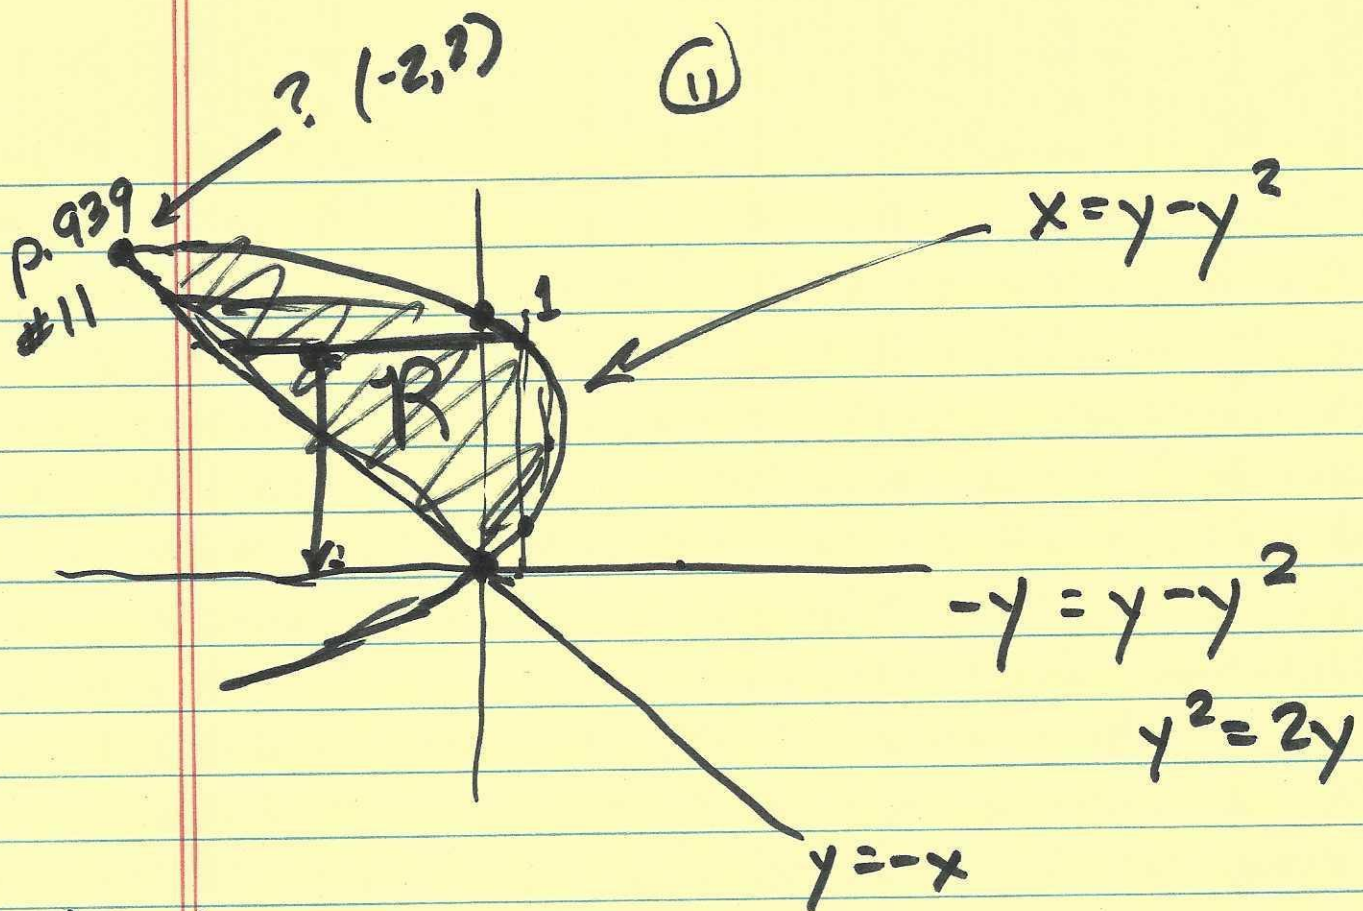 ? (-2,2)
11
p. 939
#11
x=y-y²
1
R
-y=y-y²
y²=2y
y=-x